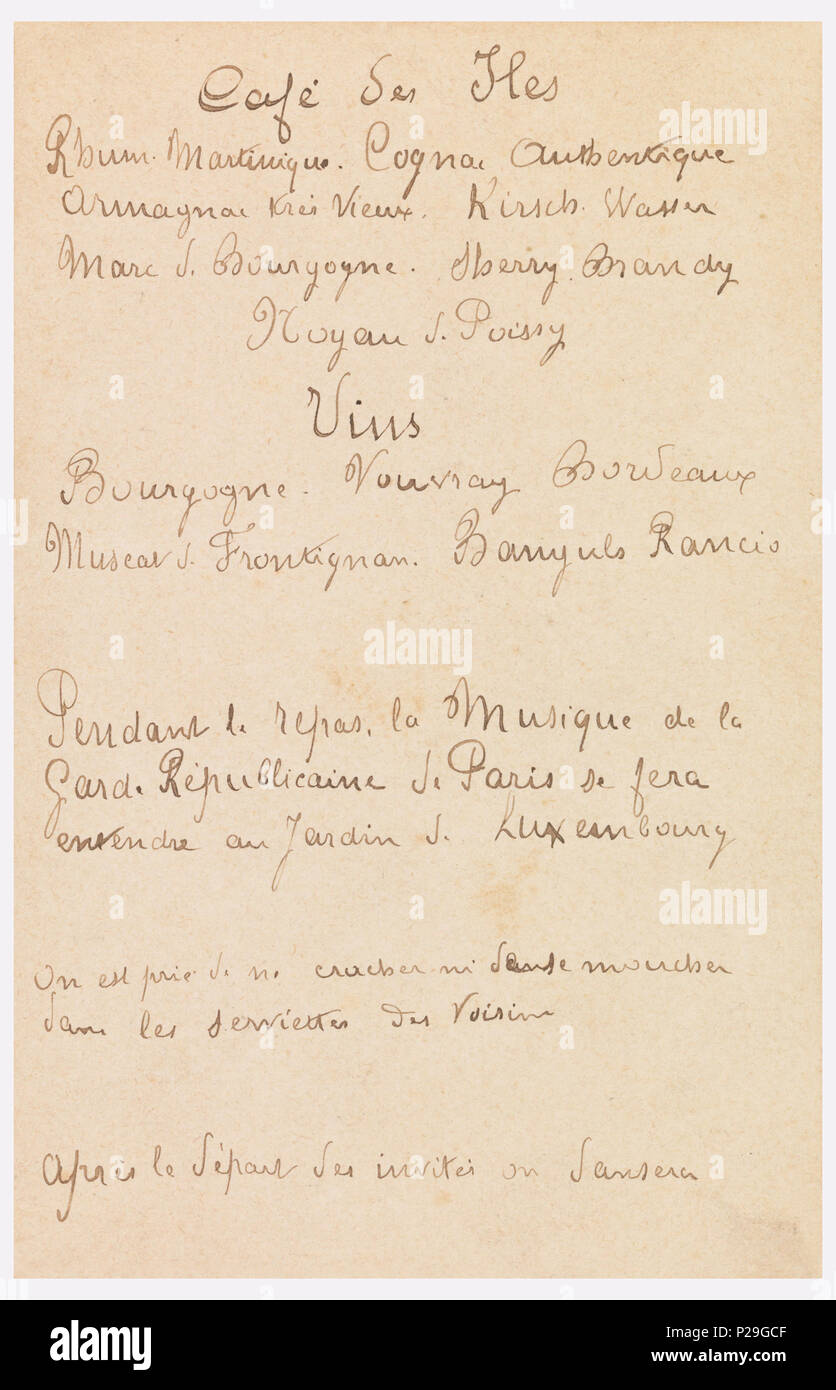 Café des Iles
Rhum. Martinique. Cognac Authentique
Armagnac très Vieux. Kirsch. Wasser
Marc d. Bourgogne. Sherry. Brandy
Noyau d. Poissy
Vins
Bourgogne. Vouvray Bordeaux
Muscat d. Frontignan. Banyuls Rancio
Pendant le repas, la Musique de la
Garde Républicaine de Paris se fera
entendre au Jardin d. Luxembourg
On est prié de ne cracher ni de se moucher
dans les serviettes des Voisins
Après le départ des invités on dansera
alamy
Image ID: P29GCF
www.alamy.com